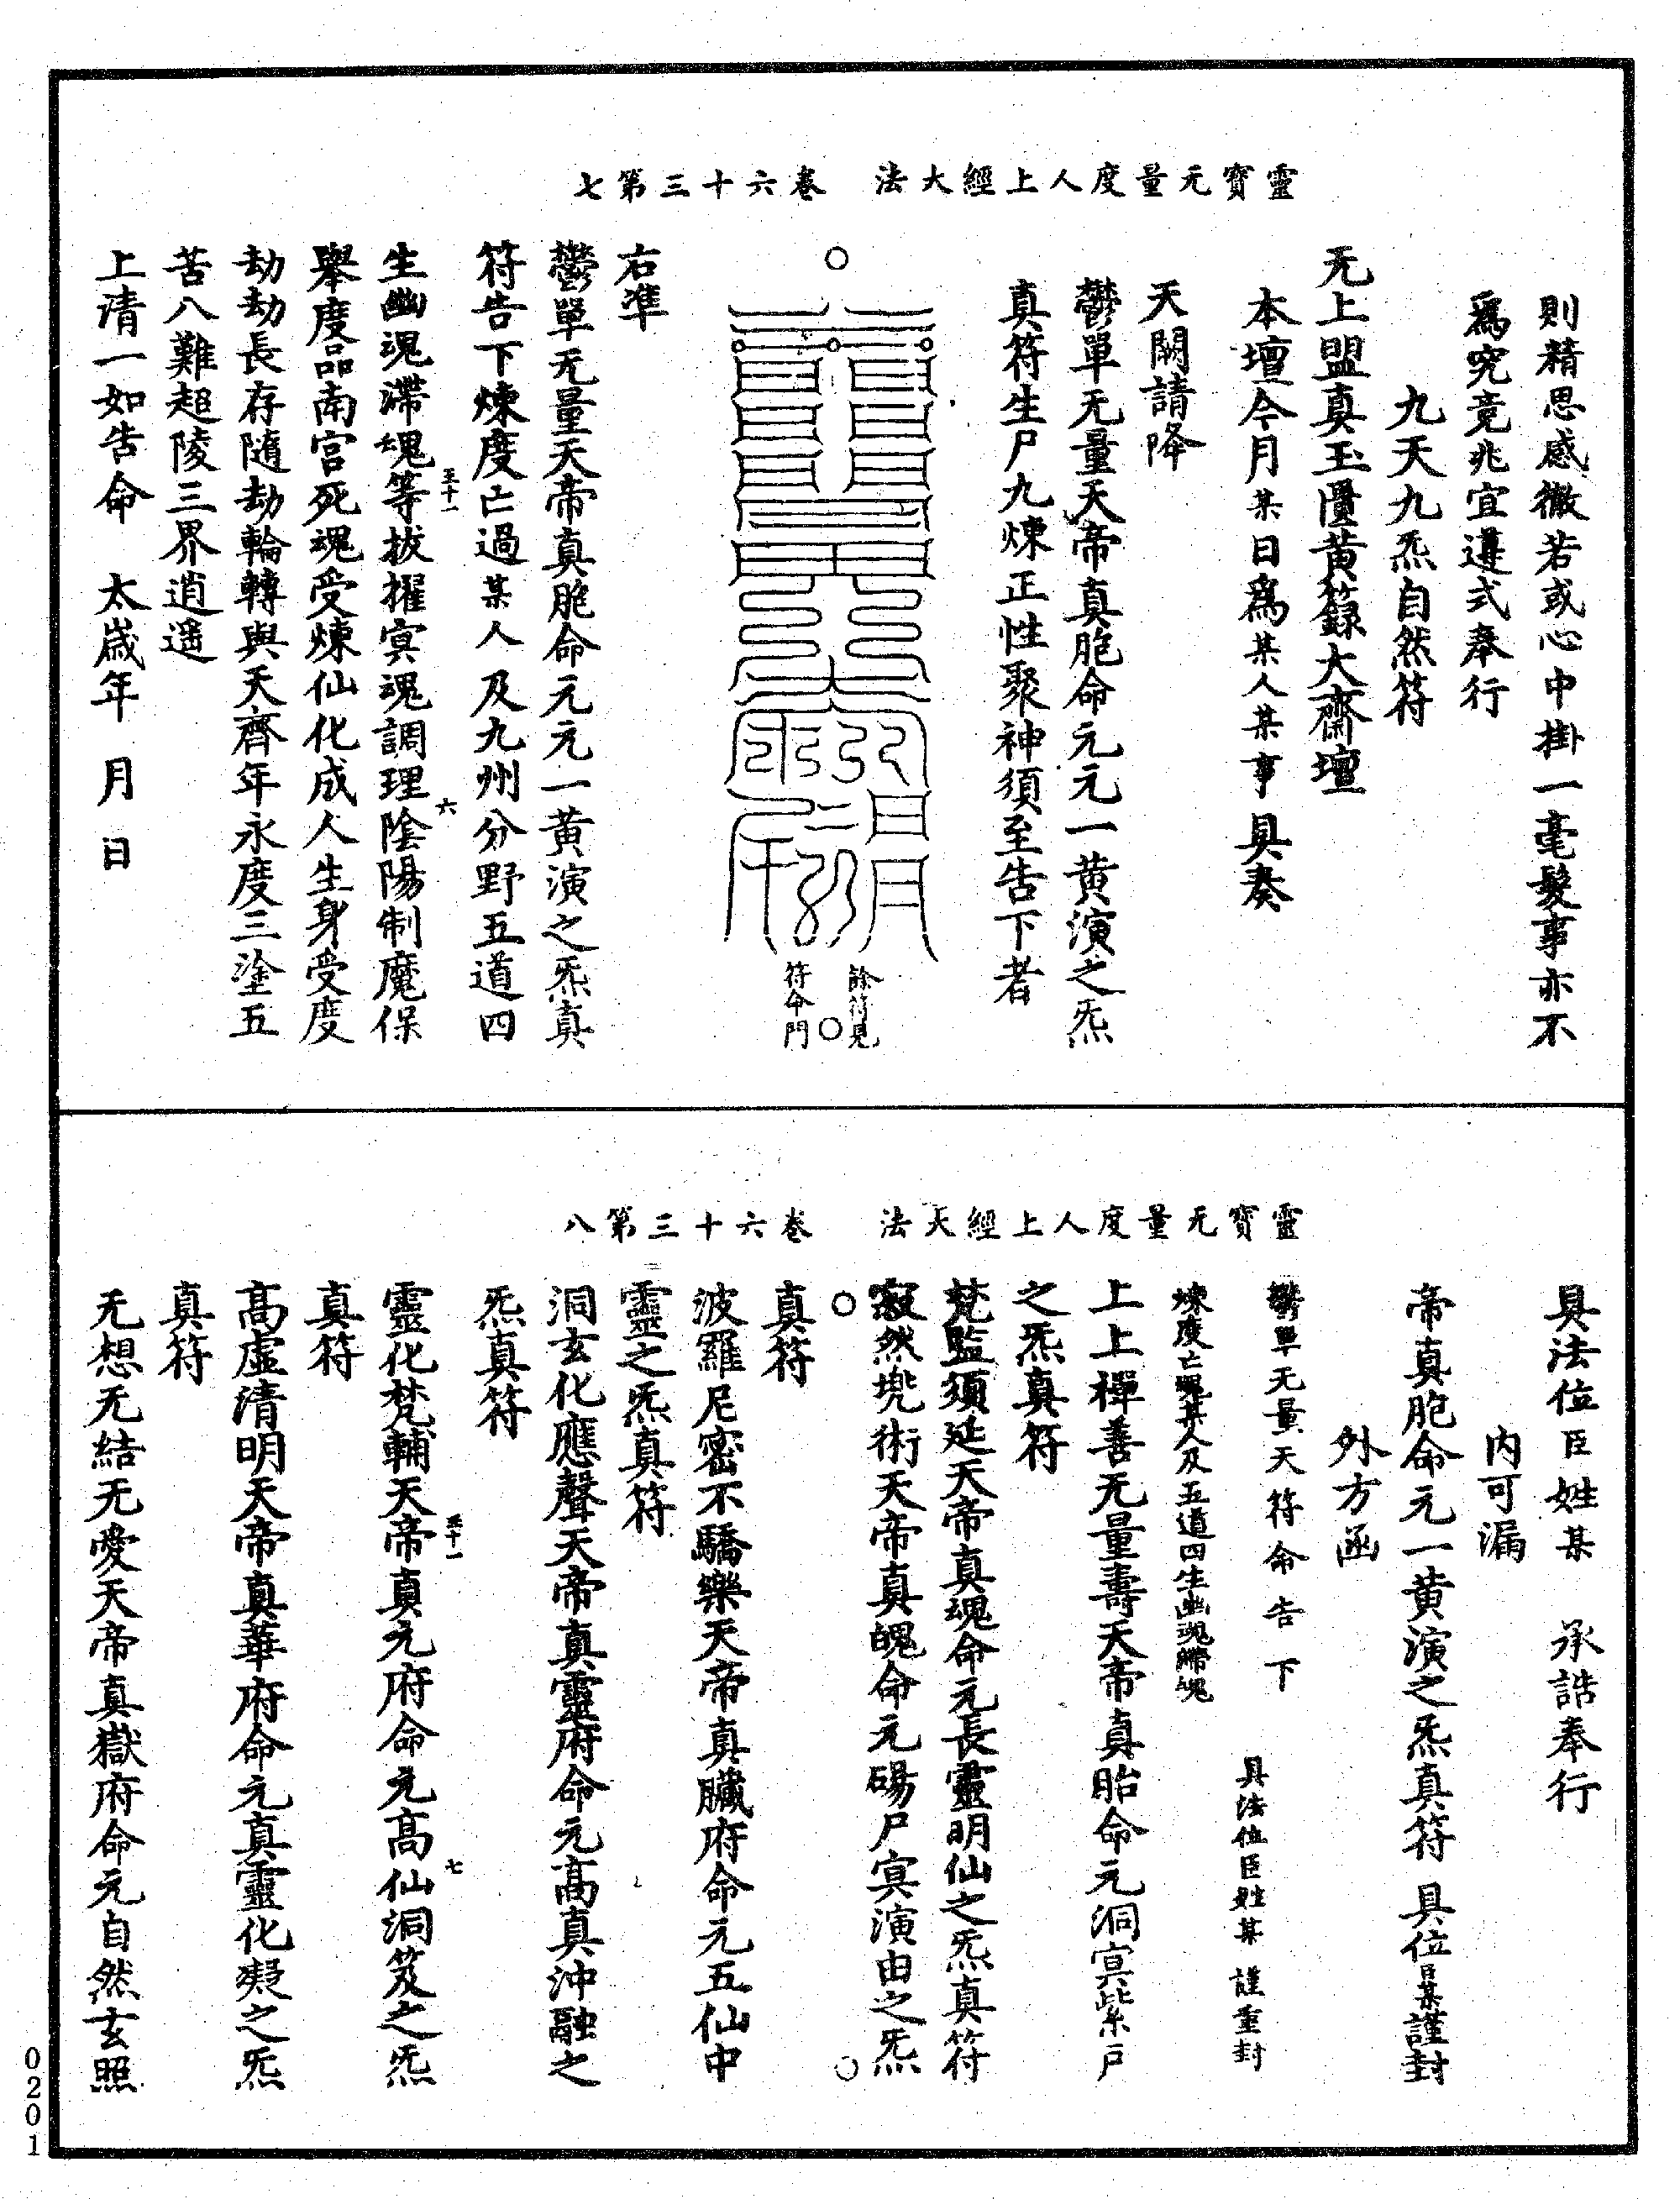 靈寶无量度人上經大法　卷六十三第七
則精思感徹若或心中掛一毫髮事亦不
爲究竟兆宜遵式奉行
九天九炁自然符
无上盟真玉匱黄籙大齋壇
本壇今月某日爲某人某事具奏
天闕請降
鬱單无量天帝真胞命元元一黄演之炁
真符生尸九煉正性聚神須至告下者
餘符見
符命門
右準
鬱單无量天帝真胞命元元一黄演之炁真
符告下煉度亡過某人及九州分野五道四
生幽魂滯魄等拔擢冥魂調理陰陽制魔保
至十一
六
舉度品南宫死魂受煉仙化成人生身受度
劫劫長存隨劫輪轉與天齊年永度三塗五
苦八難超陵三界逍遥
上清一如告命　太歲年　月　日
靈寶无量度人上經大法　卷六十三第八
具法位臣姓某　承誥奉行
内可漏
帝真胞命元一黄演之炁真符　具位臣某謹封
外方函
鬱單无量天符命告下
煉度亡魂某人及五道四生幽魂滯魄
具法位臣姓某　謹重封
上上禪善无量壽天帝真胎命元洞冥紫戸
之炁真符
梵監須延天帝真魂命元長靈明仙之炁真符
寂然兠術天帝真魄命元碭尸冥演由之炁
真符
波羅尼密不驕樂天帝真臟府命元五仙中
靈之炁真符
洞玄化應聲天帝真靈府命元高真沖融之
炁真符
靈化梵輔天帝真元府命元高仙洞笈之炁
至十一
七
真符
高虛清明天帝真華府命元真靈化凝之炁
真符
无想无結无愛天帝真獄府命元自然玄照
0201